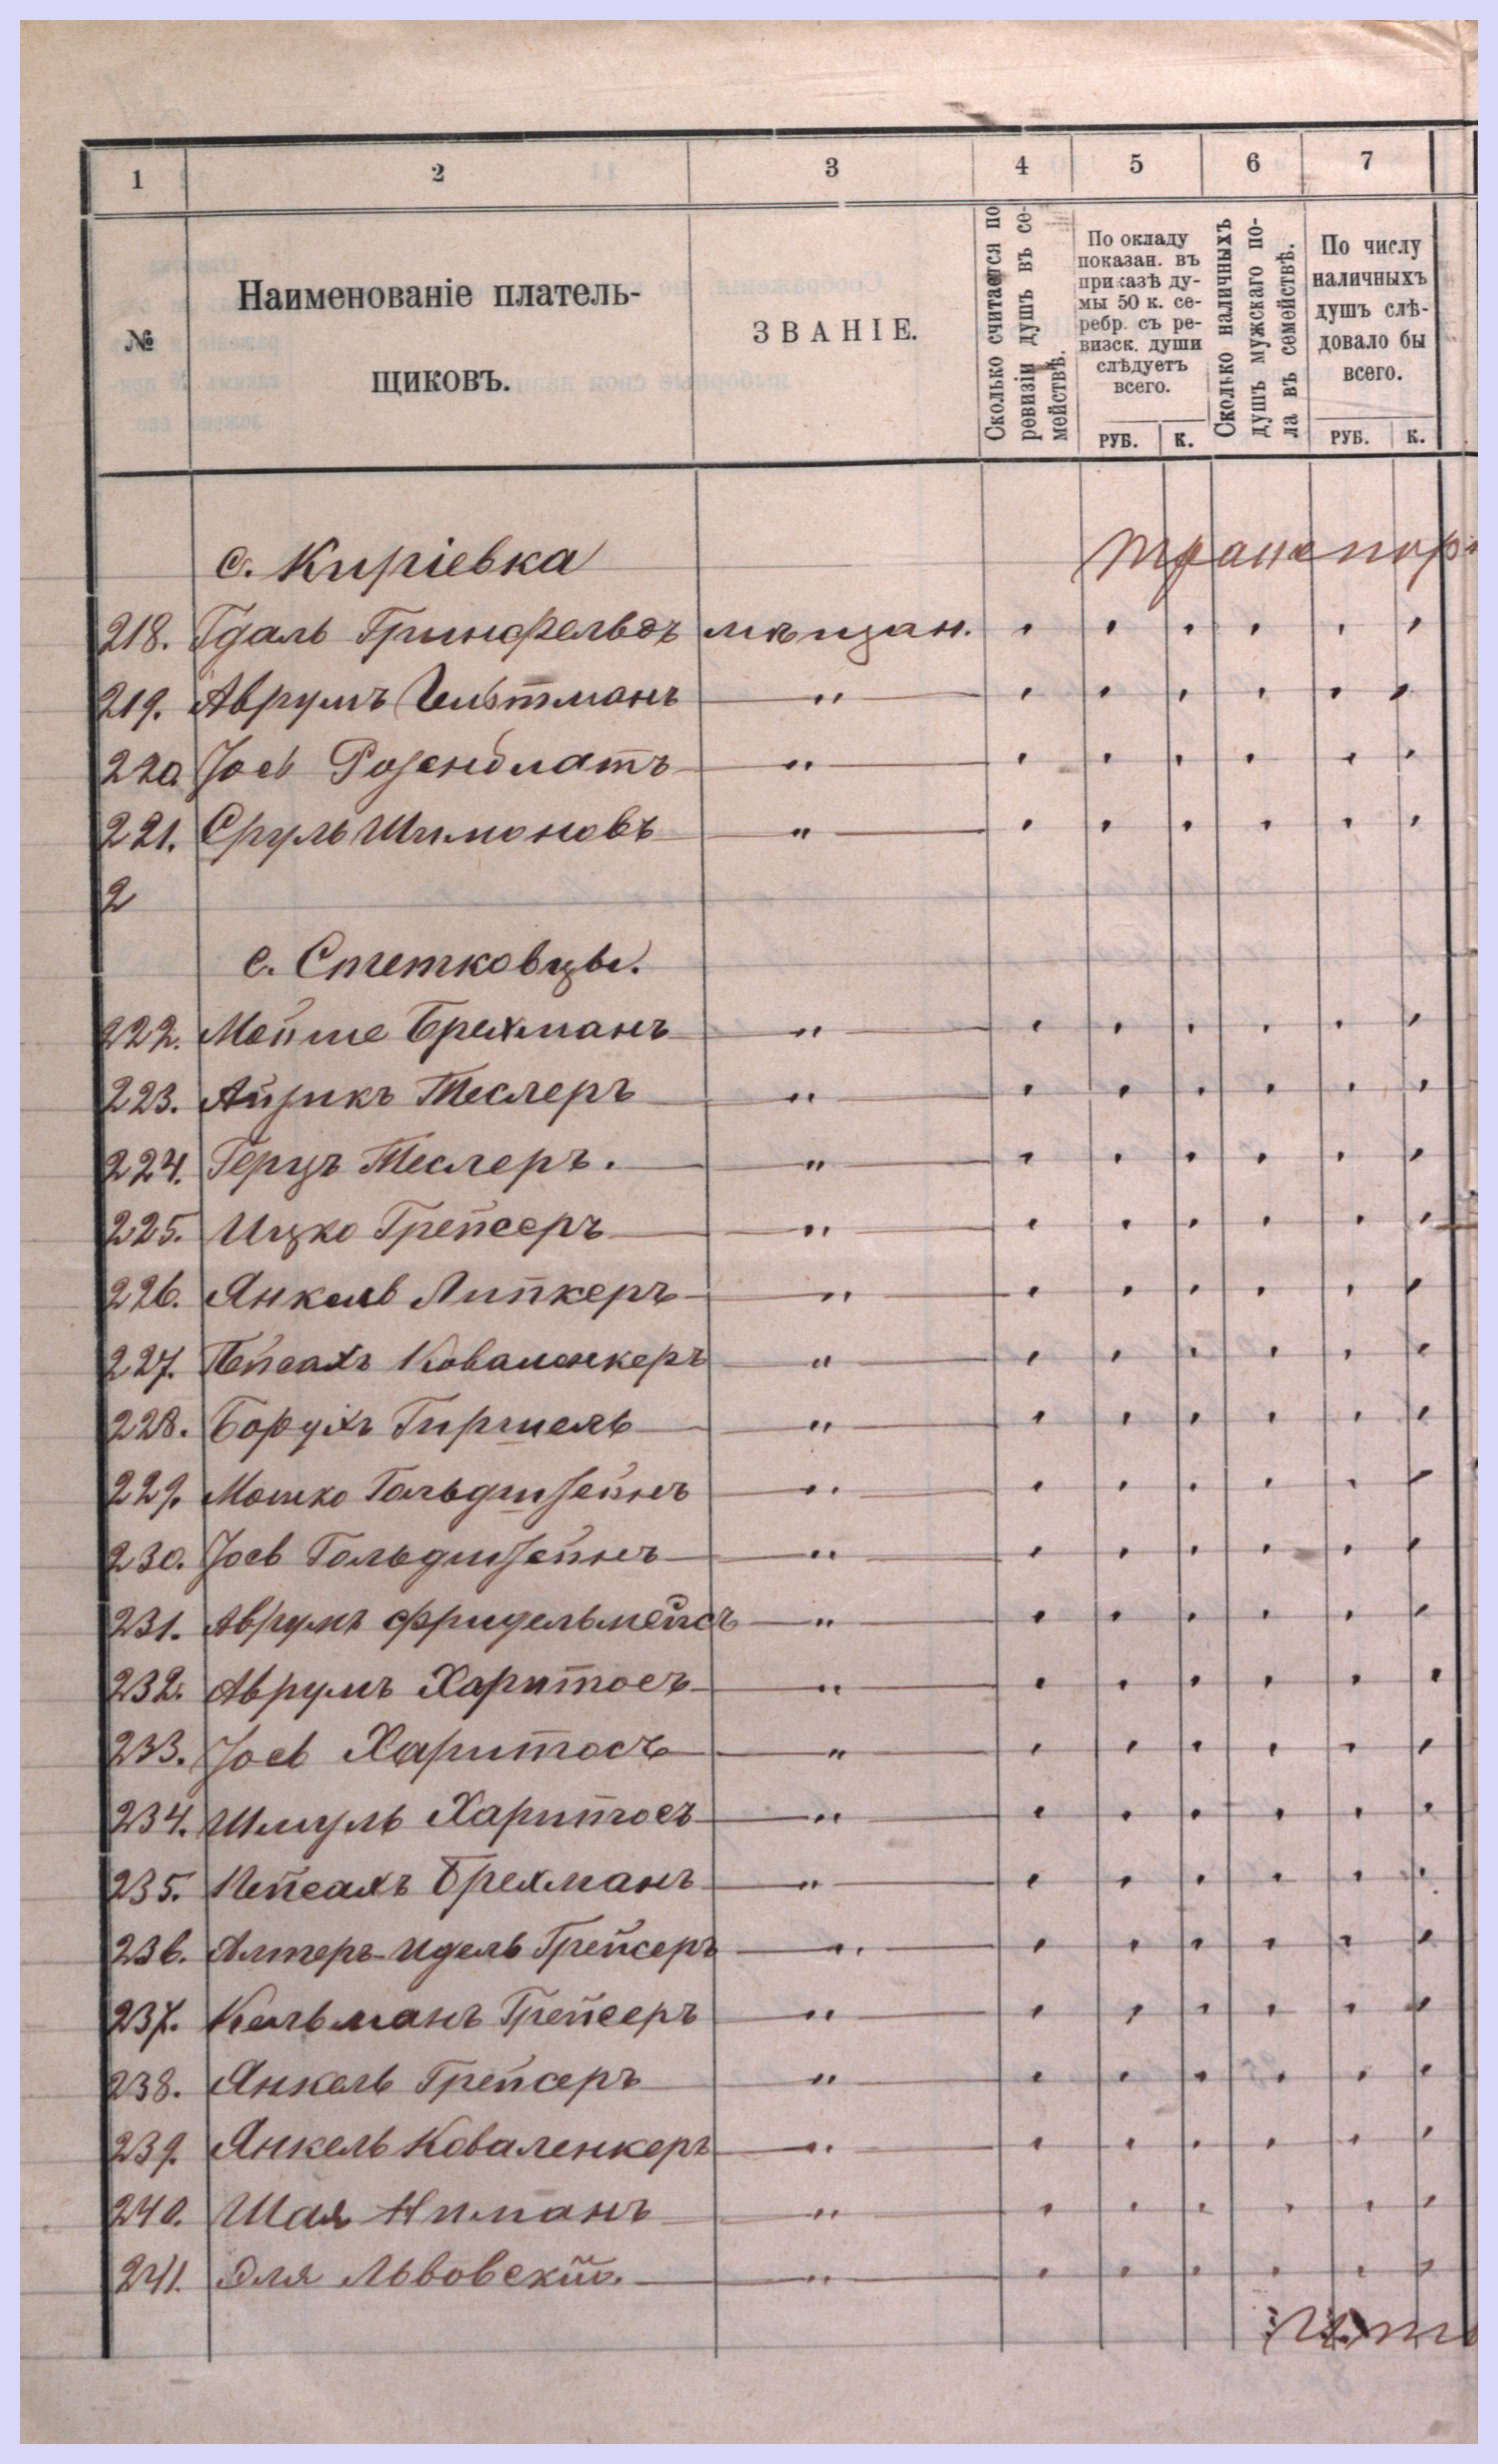 1 2 3 4 5 6 7
№
Наименованіе платель-
щиковъ.
ЗВАНІЕ.
Сколько считается по
ревизіи душъ въ се-
мействѣ.
По окладу
показан. въ
приказѣ ду-
мы 50 к. се-
ребр. съ ре-
визск. души
слѣдуетъ
всего.
РУБ. К.
Сколько наличныхъ
душъ мужскаго по-
ла въ семействѣ.
По числу
наличныхъ
душъ слѣ-
довало бы
всего.
РУБ. К.
с. Киріевка
Транспор
218. Гдаль Гринфельдъ мѣщан. " " " " " "
219. Аврумъ Гельтманъ — " — " " " " " "
220 Іось Розенблатъ — " — " " " " " "
221. Сруль Шимоновъ — " — " " " " " "
2
с. Стетковцы.
222. Мойше Брехманъ — " — " " " " " "
223. Айзикъ Теслеръ — " — " " " " " "
224. Герцъ Теслеръ. — " — " " " " " "
225. Ицко Грейсеръ — " — " " " " " "
226. Янкель Липкеръ — " — " " " " " "
227. Пейсахъ Коваленкеръ — " — " " " " " "
228. Борухъ Гиршель — " — " " " " " "
229. Мошко Гольдшзейнъ — " — " " " " " "
230. Іось Гольдшзейнъ — " — " " " " " "
231. Аврумъ Фридельмейсъ — " — " " " " " "
232. Аврумъ Харитосъ — " — " " " " " "
233. Іось Харитосъ — " — " " " " " "
234. Шмуль Харитосъ — " — " " " " " "
235. Пейсахъ Брехманъ — " — " " " " " "
236. Алтеръ-Идель Грейсеръ — " — " " " " " "
237. Кельманъ Грейсеръ — " — " " " " " "
238. Янкель Грейсеръ — " — " " " " " "
239. Янкель Коваленкеръ — " — " " " " " "
240. Шая Ниманъ — " — " " " " " "
241. Эля Львовскій. — " — " " " " " "
Ито